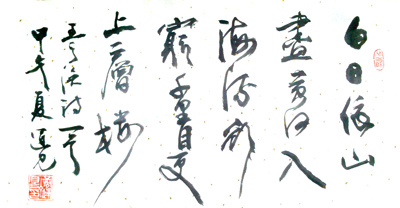 白日依山
盡黄河入
海流欲
窮千里目更
上一層樓
王之渙诗一首
甲午夏